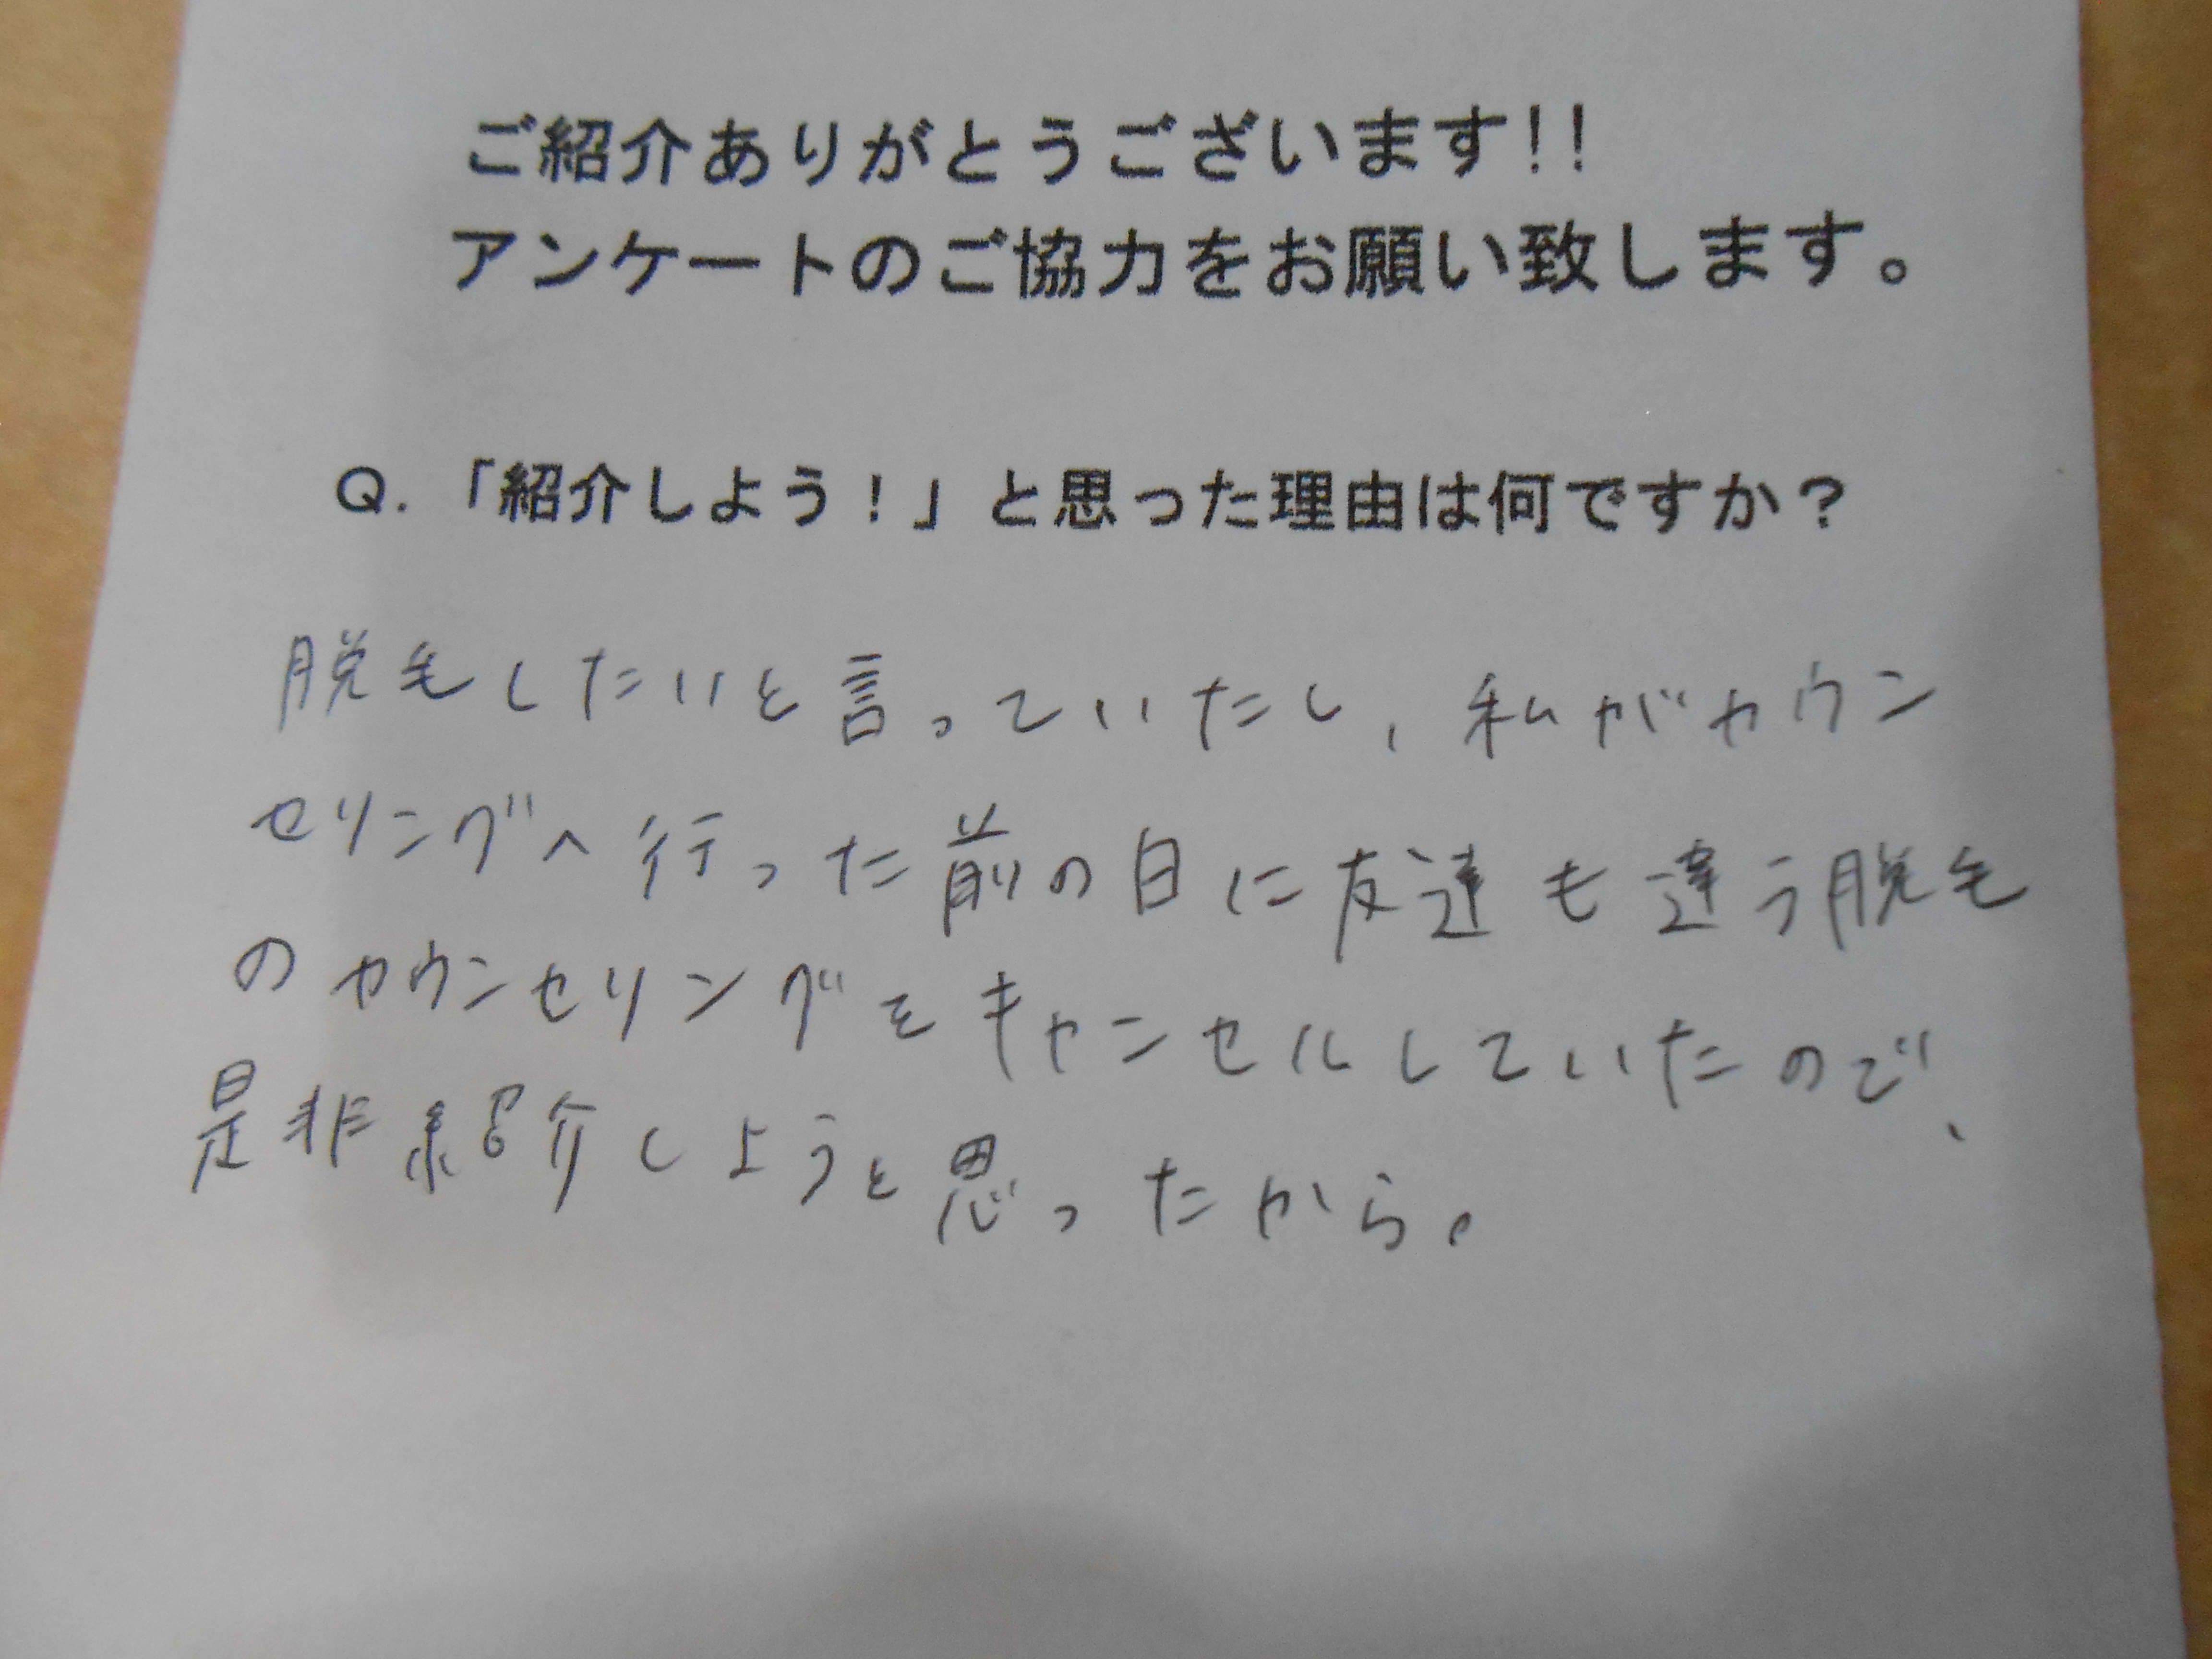 ご紹介ありがとうございます!!
アンケートのご協力をお願い致します。
Q.「紹介しよう!」と思った理由は何ですか?
脱毛したいと言っていたし、私がカウン
セリングへ行った前の日に友達も違う脱毛
のカウンセリングをキャンセルしていたので、
是非紹介しようと思ったから。